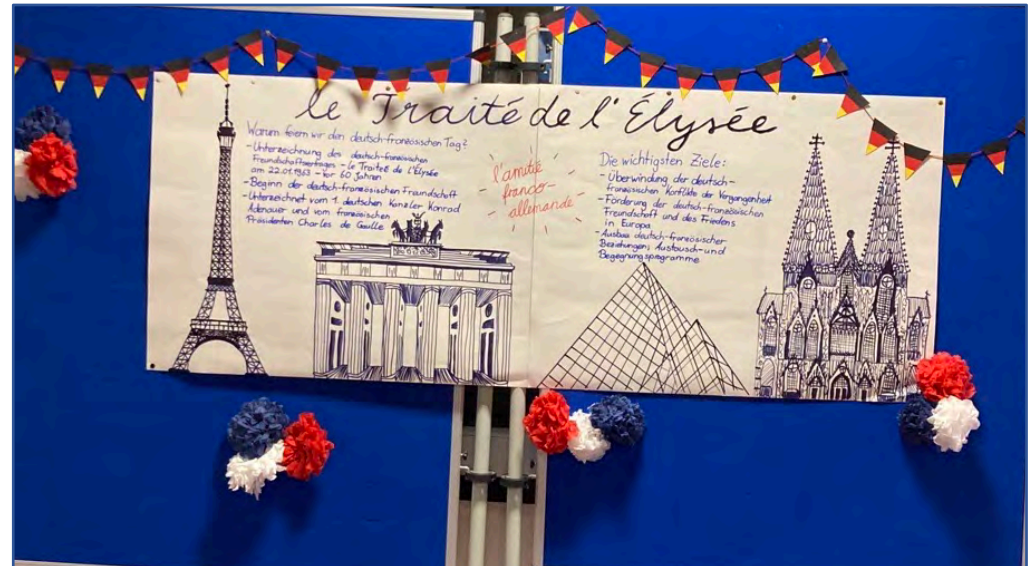 le Traité de l'Élysée
Warum feiern wir den deutsch-französischen Tag?
- Unterzeichnung des deutsch-französischen
Freundschaftsvertrages - le Traité de l'Élysée
am 22.01.1963 - vor 60 Jahren
- Beginn der deutsch-französischen Freundschaft
- Unterzeichnet vom 1. deutschen Kanzler Konrad
Adenauer und vom französischen
Präsidenten Charles de Gaulle
l'amitié
franco-
allemande
Die wichtigsten Ziele:
- Überwindung der deutsch-
französischen Konflikte der Vergangenheit
- Förderung der deutsch-französischen
Freundschaft und des Friedens
in Europa
- Ausbau deutsch-französischer
Beziehungen; Austausch- und
Begegnungsprogramme